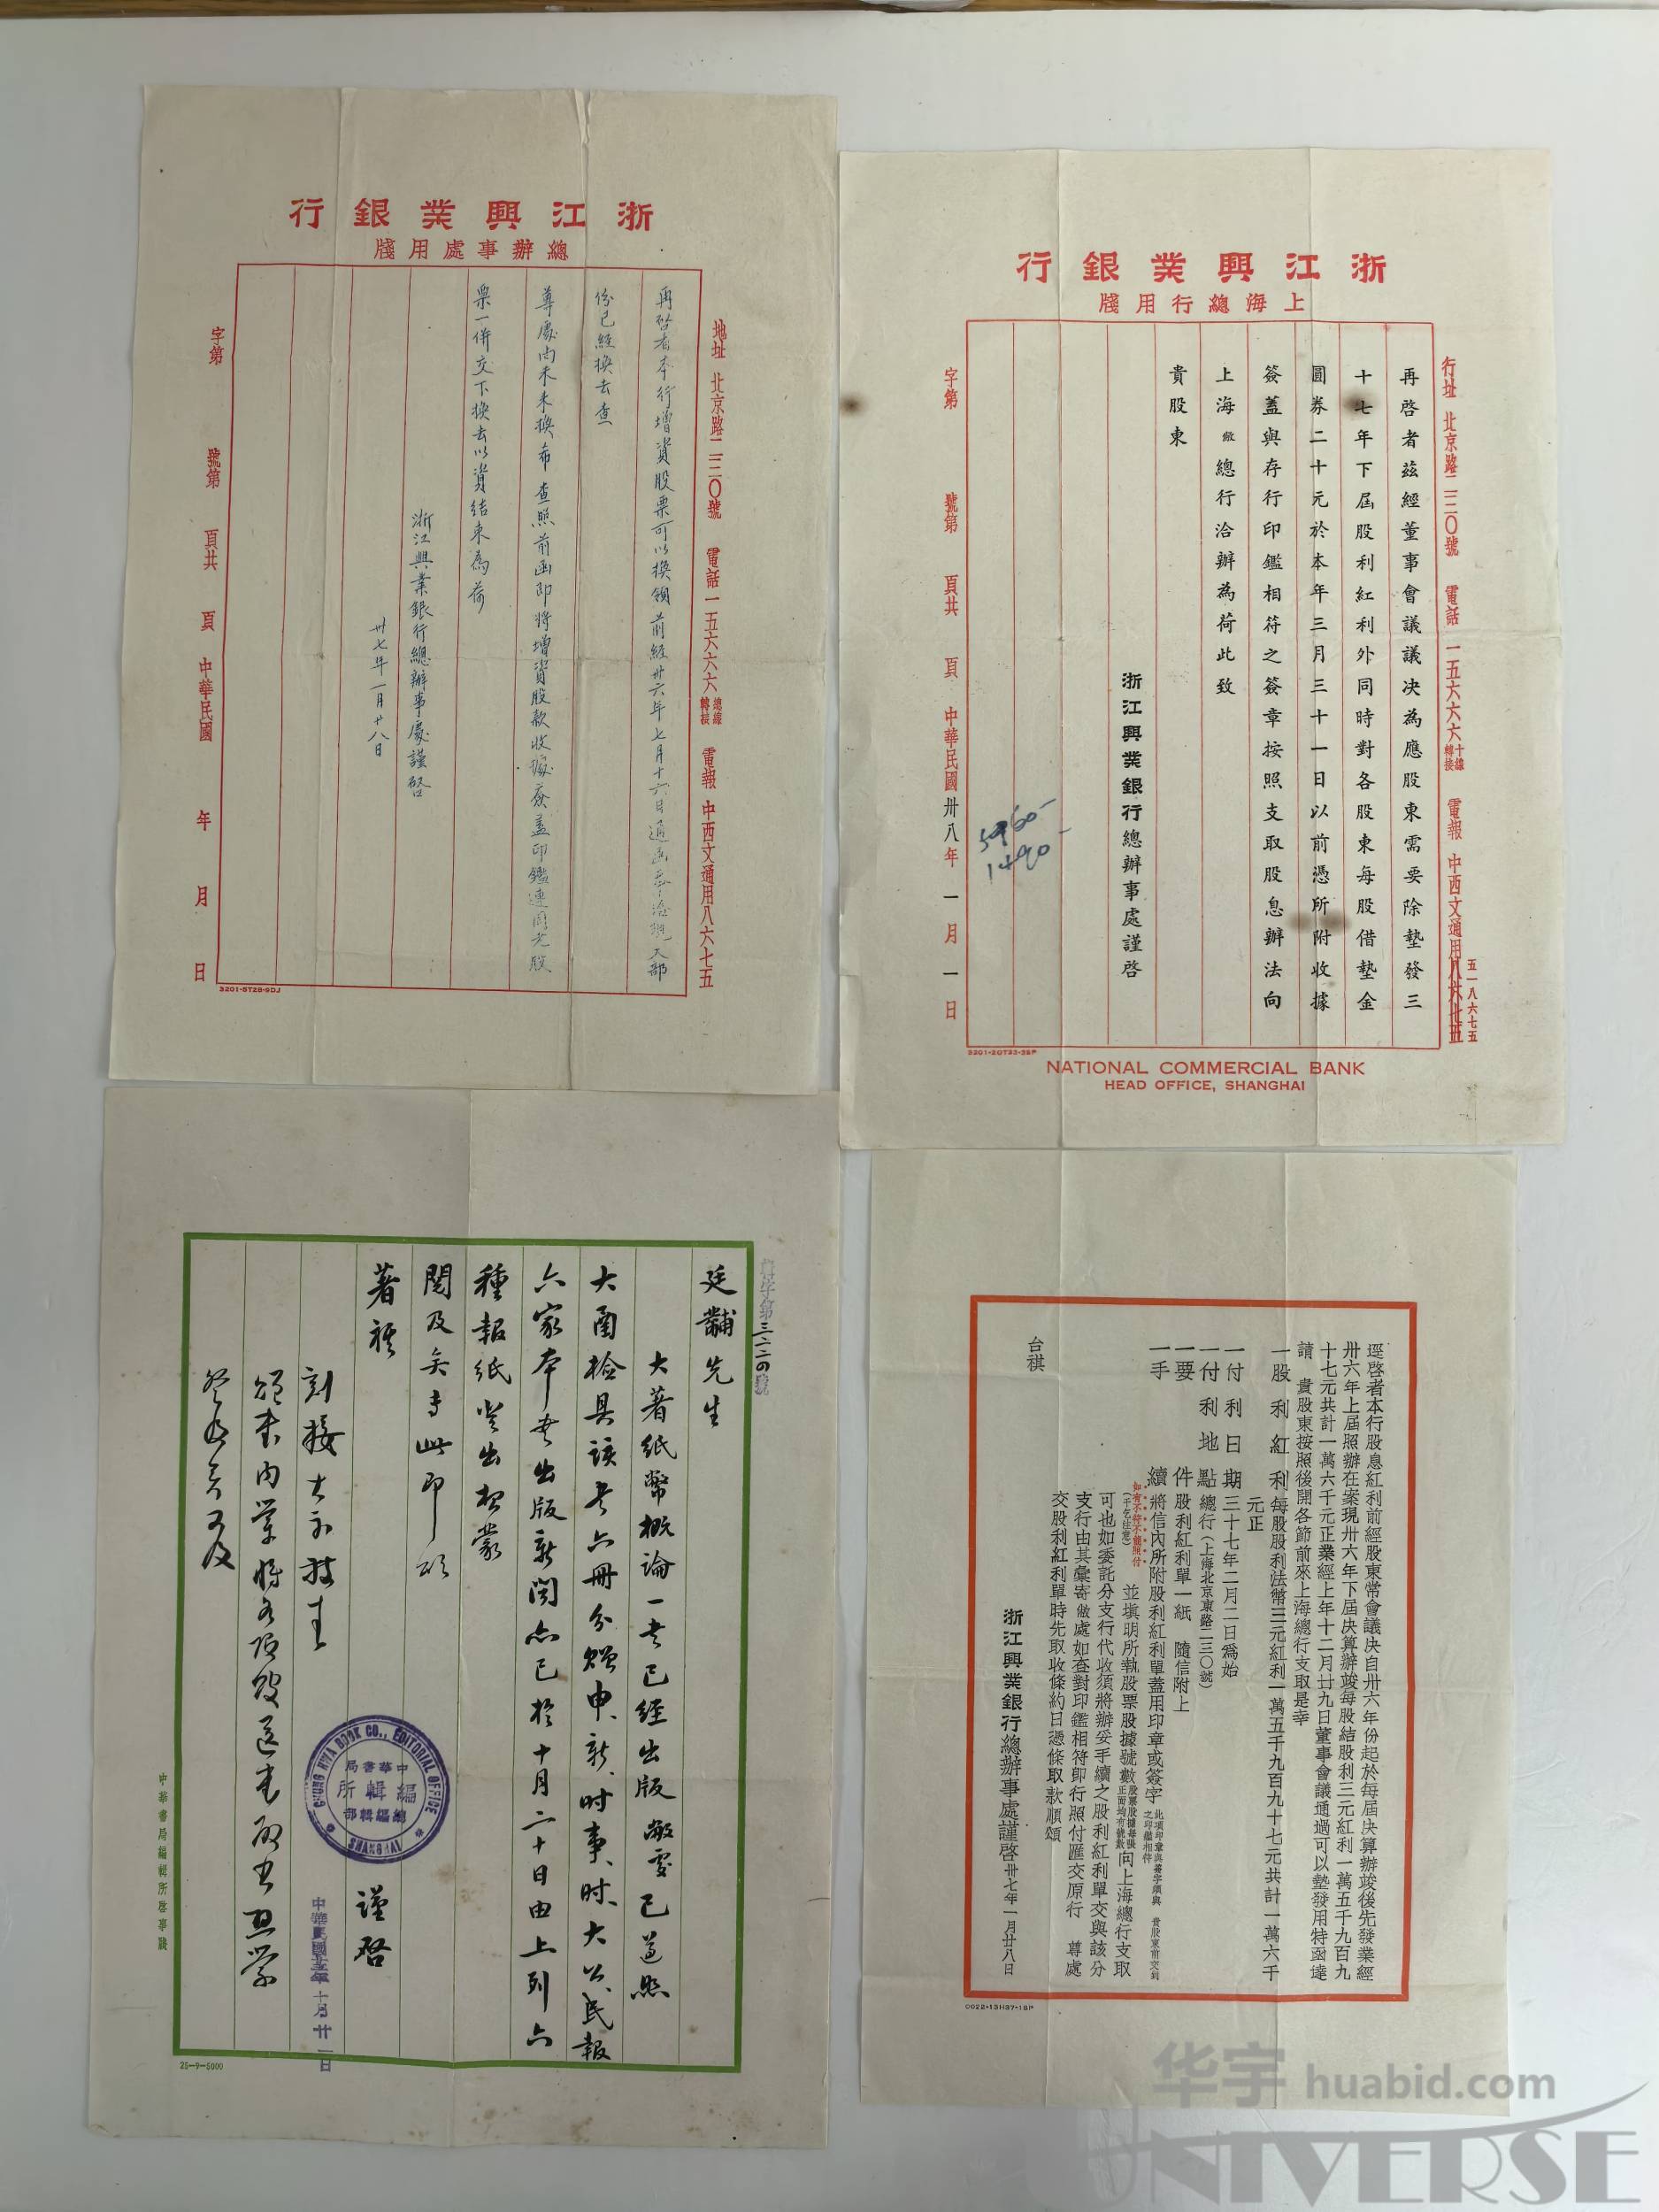 浙江興業銀行
總辦事處用牋
地址 北京路二三〇號 電話 一五六六六 總線轉接 電報 中西文通用八六七五
再啓者本行增資股票可以換領前經卅六年七月十六日通函
份已經換去查
尊處尚未來換希查照前函即將增資股款收據簽蓋印鑑連同老股
票一併交下換去以資結束為荷
浙江興業銀行總辦事處謹啓
卅七年一月廿八日
字第 號第 頁共 頁 中華民國 年 月 日
3201-5T28-9DJ
浙江興業銀行
上海總行用牋
行址 北京路二三〇號 電話 一五六六六 十線轉接 電報 中西文通用八六七五
五一八六七五
再啓者茲經董事會議議决為應股東需要除墊發三
十七年下屆股利紅利外同時對各股東每股借墊金
圓券二十元於本年三月三十一日以前憑所附收據
簽蓋與存行印鑑相符之簽章按照支取股息辦法向
上海敝總行洽辦為荷此致
貴股東
浙江興業銀行總辦事處謹啓
5960-
1490-
字第 號第 頁共 頁 中華民國卅八年一月一日
3201-20T33-38P
NATIONAL COMMERCIAL BANK
HEAD OFFICE, SHANGHAI
第三二二四號
廷黼先生
大著紙幣概論一書已經出版敝處已遵照
大函檢具該書六冊分贈申、新、時事、時、大公、民報
六家本書出版新聞亦已於十月二十日由上列六
種報紙登出想蒙
閱及矣專此即頌
著祺
謹啓
刻接大示敬
CHUNG HWA BOOK CO., EDITORIAL OFFICE
SHANGHAI
中華書局
編輯所
總編輯部
中華民國廿五年十月廿一日
中華書局編輯所啓事牋
25-9-5000
逕啓者本行股息紅利前經股東常會議决自卅六年份起於每屆決算辦竣後先發業經
卅六年上屆照辦在案現卅六年下屆決算辦竣每股結股利三元紅利一萬五千九百九
十七元共計一萬六千元正業經上年十二月廿九日董事會議通過可以墊發用特函達
請 貴股東按照後開各節前來上海總行支取是幸
一股利紅利 每股股利法幣三元紅利一萬五千九百九十七元共計一萬六千
元正
一付利日期 三十七年二月二日爲始
一付利地點 總行（上海北京東路二三〇號）
一要件 股利紅利單一紙 隨信附上
一手續 將信內所附股利紅利單蓋用印章或簽字 此項印章與簽字須與 貴股東前交到之印鑑相符
如有不符不能照付（千乞注意） 並填明所執股票股據號數 股票股據每張正面均有號數 向上海總行支取
可也如委託分支行代收須將辦妥手續之股利紅利單交與該分
支行由其彙寄敝處如查對印鑑相符即行照付匯交原行 尊處
交股利紅利單時先取收條約日憑條取款順頌
台祺
浙江興業銀行總辦事處謹啓 卅七年一月廿八日
0022-13H37-18P
华宇 huabid.com
UNIVERSE